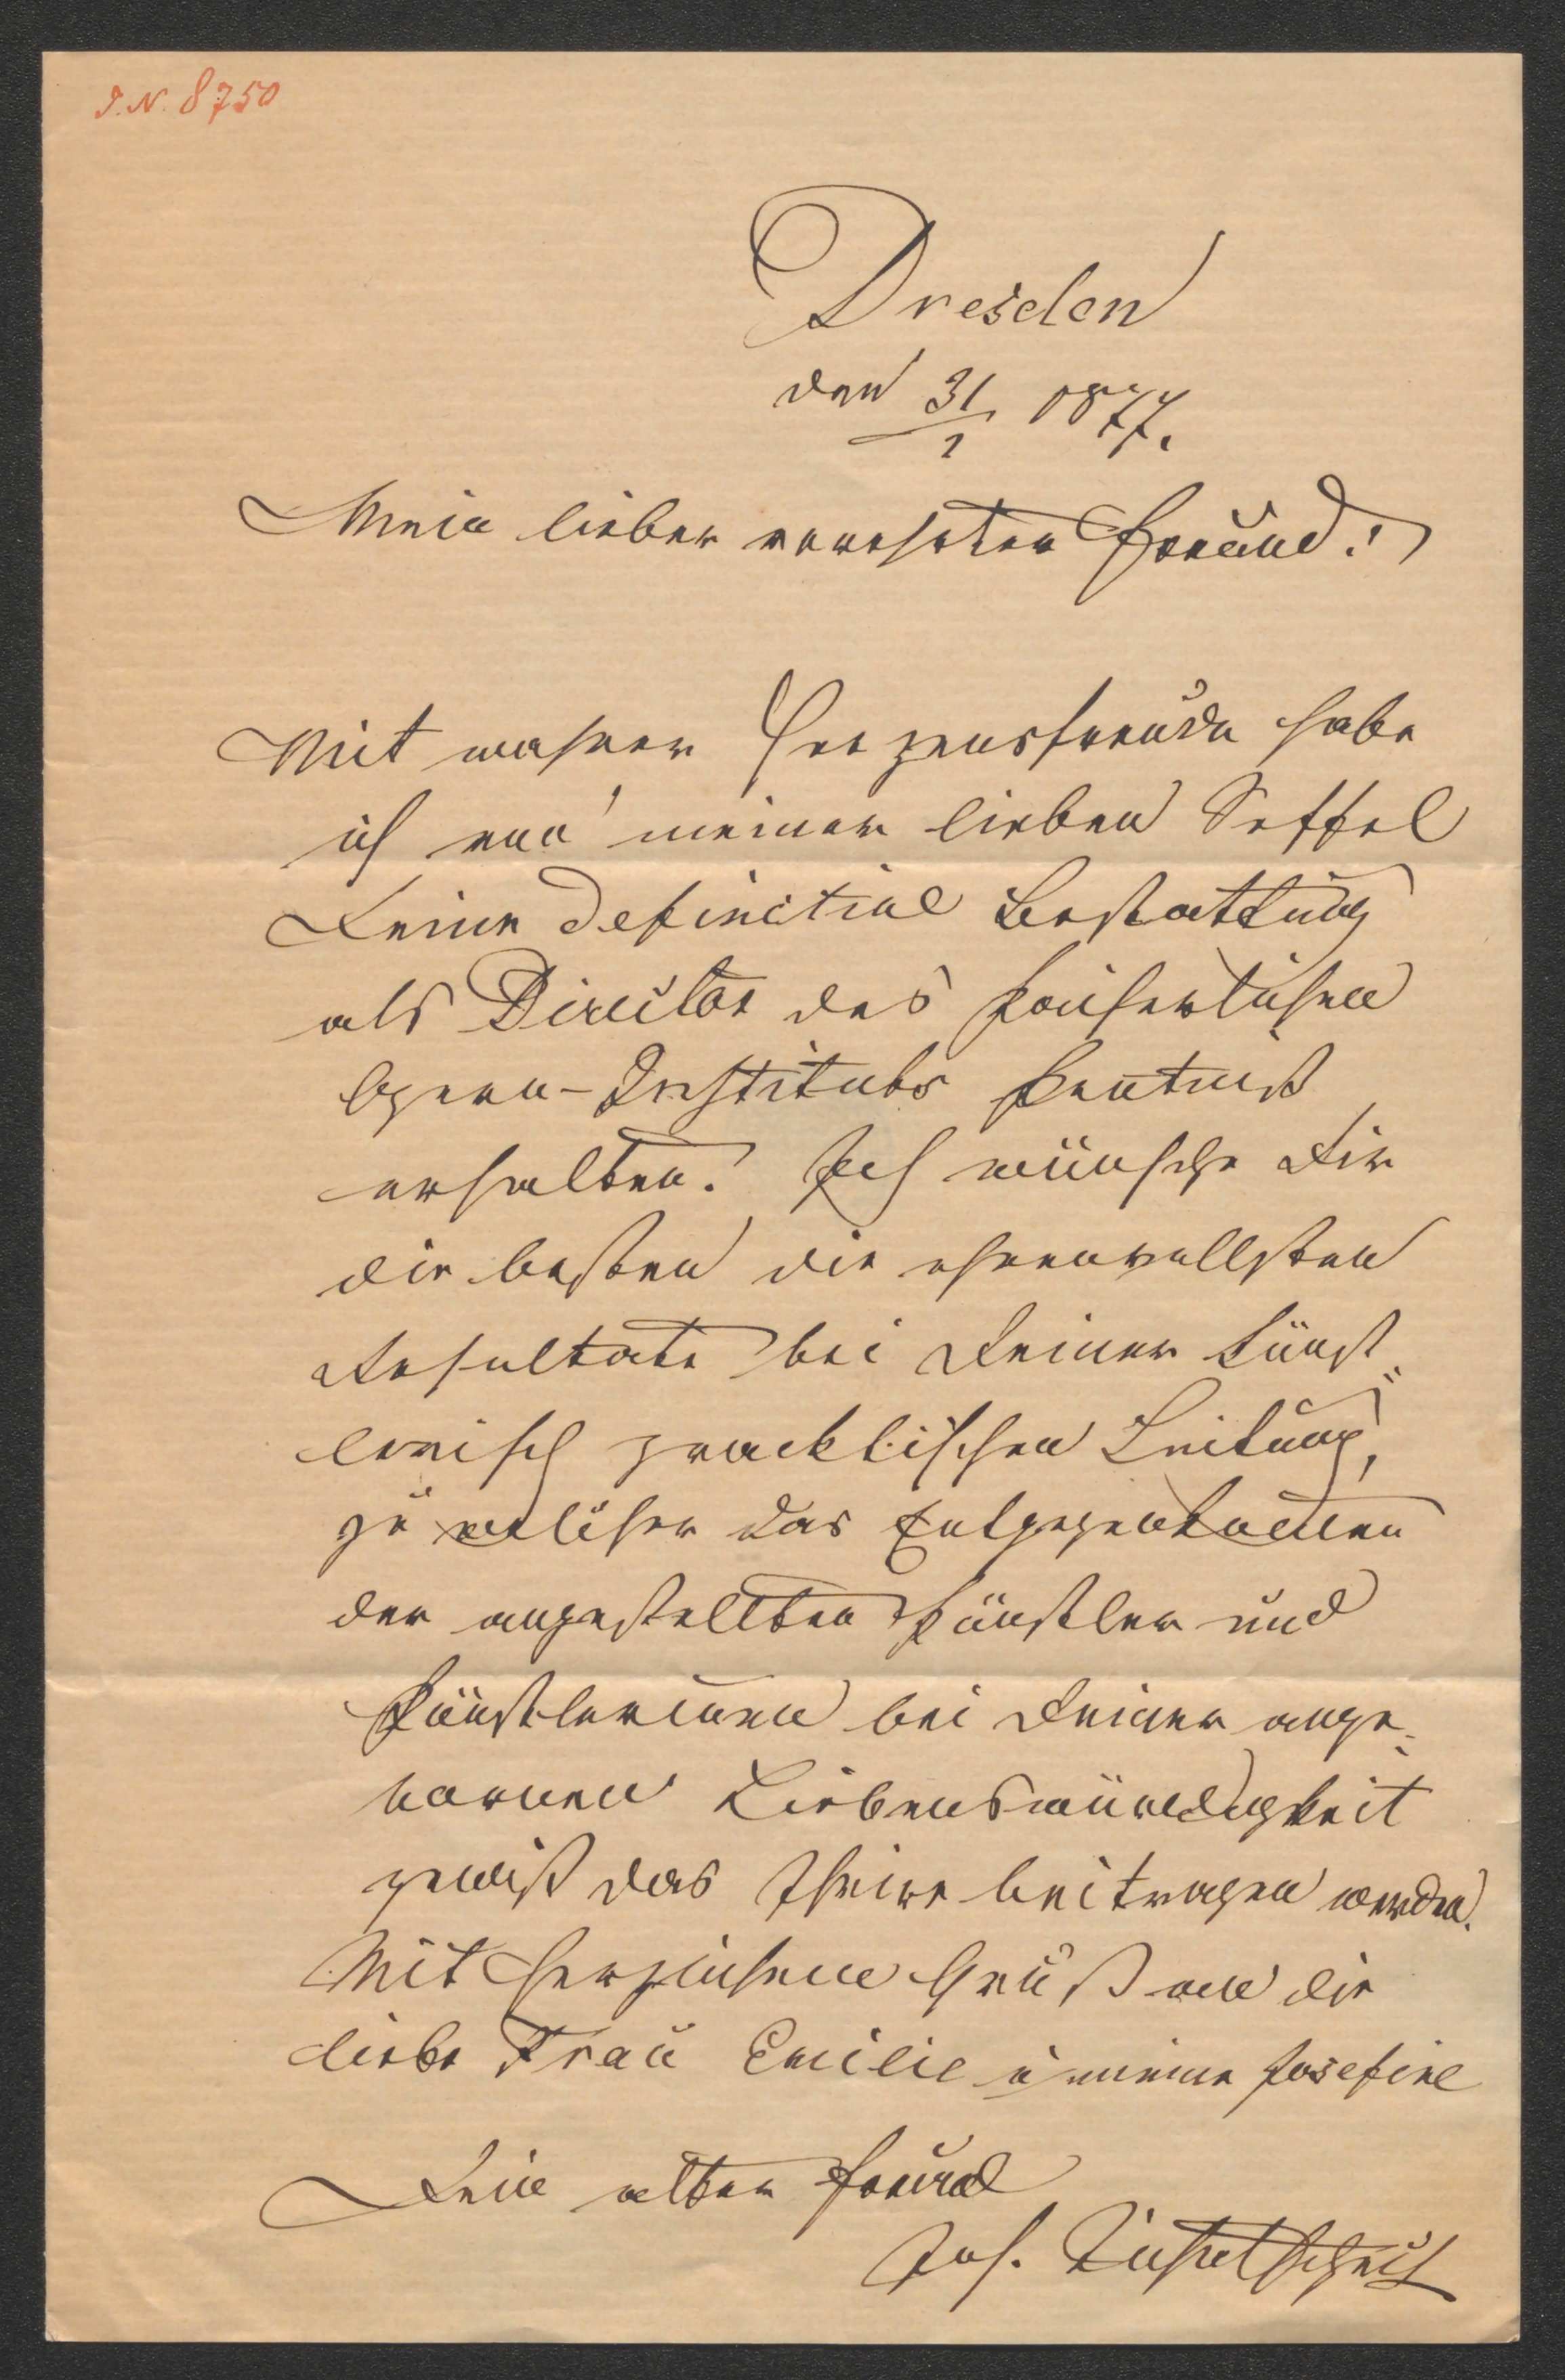 I.N. 8750
Dresden
den 31/1 1877.
Mein lieber verehrter Freund!
Mit wahrer Herzensfreude habe
ich von meiner lieben Seffel
Deine definitive Bestattung
als Director des kaiserlichen
Opern-Instituts Kentniß
erhalten. Ich wünsche Dir
die besten die ehrenvollsten
Resultate bei Deiner künst-
lerisch pracktischen Leitung,
zu welcher das Entgegenkommen
der angestellten Künstler und
Künstlerinnen bei Deiner ange-
bornen Liebenswürdigkeit
gewiß das Ihrige beitragen werden.
Mit herzlichem Gruß an die
liebe Frau Emilie u meine Josefine
Dein alter Freund
Jos.